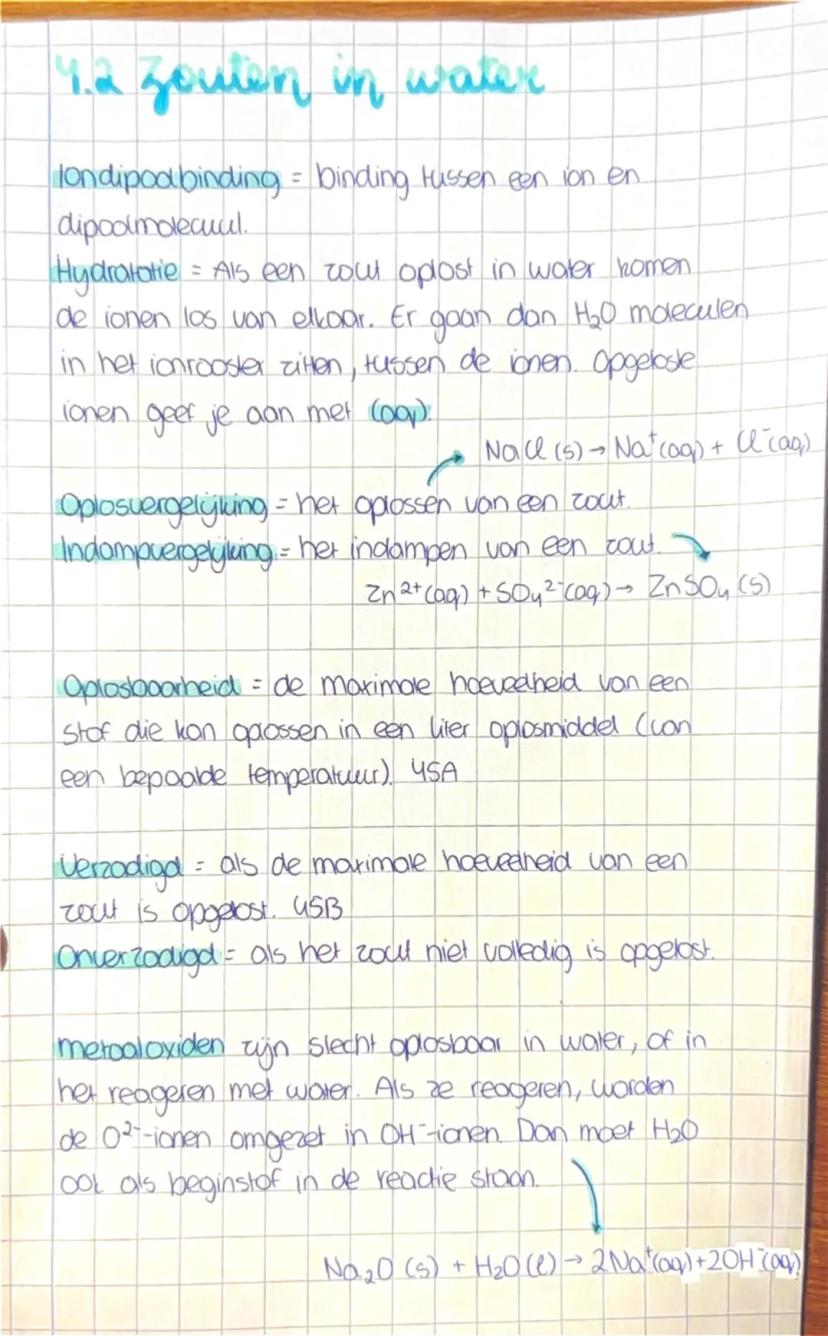 4.2 Zouten in water
Iondipoolbinding = binding tussen een ion en
dipoolmolecuul.
Hydratatie = Als een zout oplost in water komen
de ionen los van elkaar. Er gaan dan H₂O moleculen
in het ionrooster zitten, tussen de ionen. Opgeloste
ionen geef je aan met (aq).
NaCl (s) → Na⁺(aq) + Cl⁻(aq)
Oplosvergelijking = het oplossen van een zout.
Indampvergelijking = het indampen van een zout.
Zn²⁺(aq) + SO₄²⁻(aq) → ZnSO₄ (s)
Oplosbaarheid = de maximale hoeveelheid van een
stof die kan oplossen in een liter oplosmiddel (van
een bepaalde temperatuur). 45A
Verzadigd = als de maximale hoeveelheid van een
zout is opgelost. 45B
Onverzadigd = als het zout niet volledig is opgelost.
metaaloxiden zijn slecht oplosbaar in water, of in
het reageren met water. Als ze reageren, worden
de O²⁻-ionen omgezet in OH⁻-ionen. Dan moet H₂O
ook als beginstof in de reactie staan.
Na₂O (s) + H₂O (l) → 2Na⁺(aq) + 2OH⁻(aq)